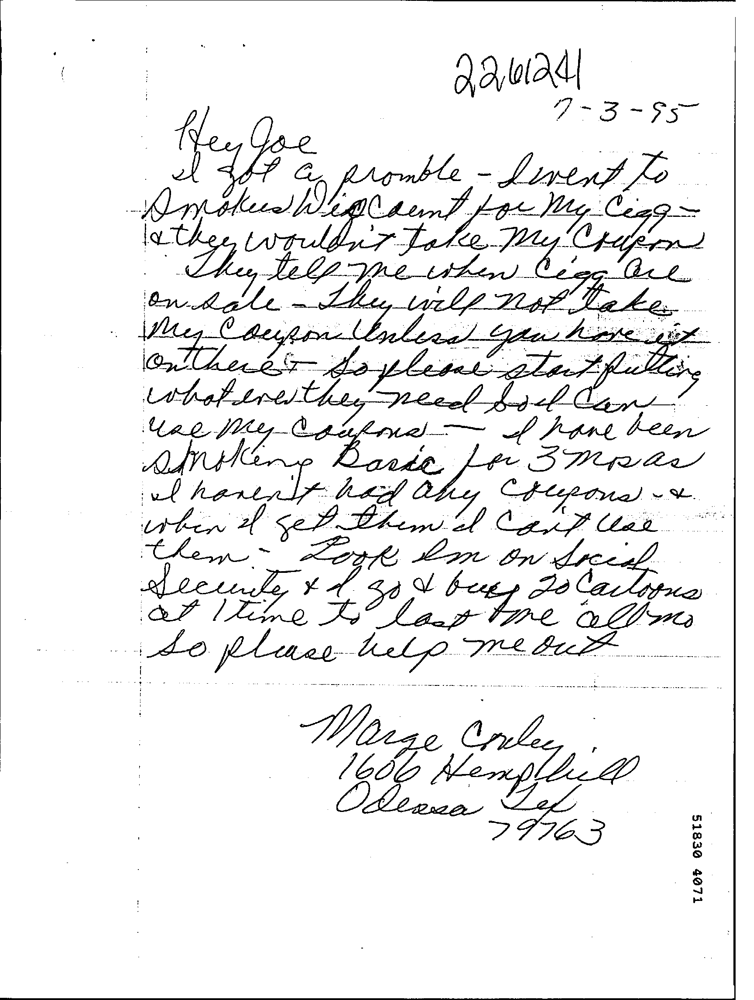 2261241
7-3-95
Hey Joe
I got a promble - I went to
Smokers DisCount for My Cigg -
& they wouldn't take My Coupon
They tell me when Cigg are
on sale - They will not take
My Coupon Unless you have it
on there - So please start putting
what ever they need So I Can
use My Coupons - I have been
Smoking Basic for 3 Mos as
I haven't had any Coupons - &
when I get them I Can't Use
them - Look Im on Social
Security & I go & buy 20 Cartoons
at 1 time to last me all mo
So please help me out
Marge Conley
1606 Hemphill
Odessa Tex
79763
51830 4071